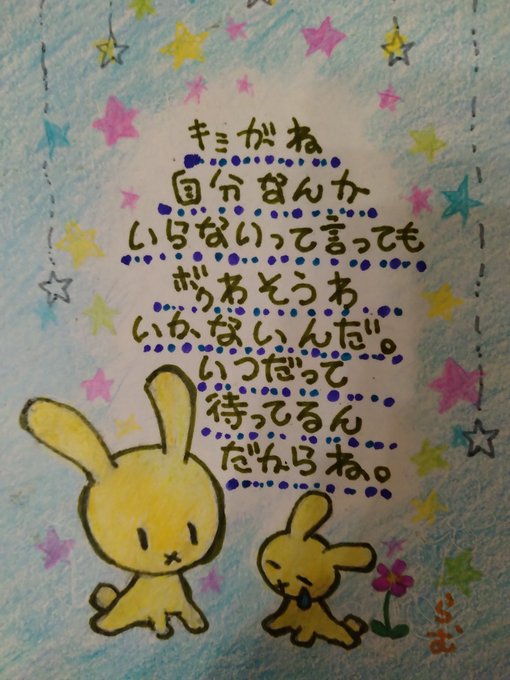 キミがね
自分なんか
いらないって言っても
ボクわそうわ
いかないんだ。
いつだって
待ってるん
だからね。